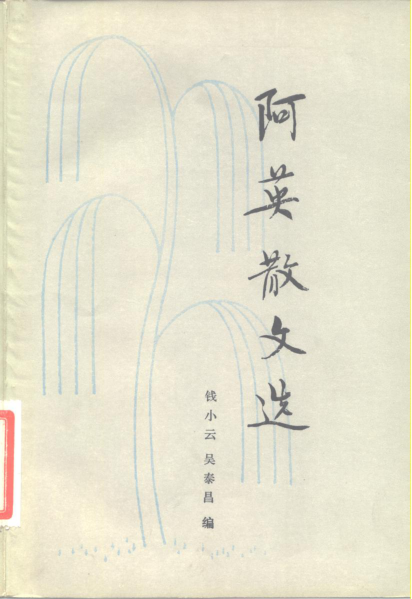 阿英散文选
钱小云 吴泰昌 编